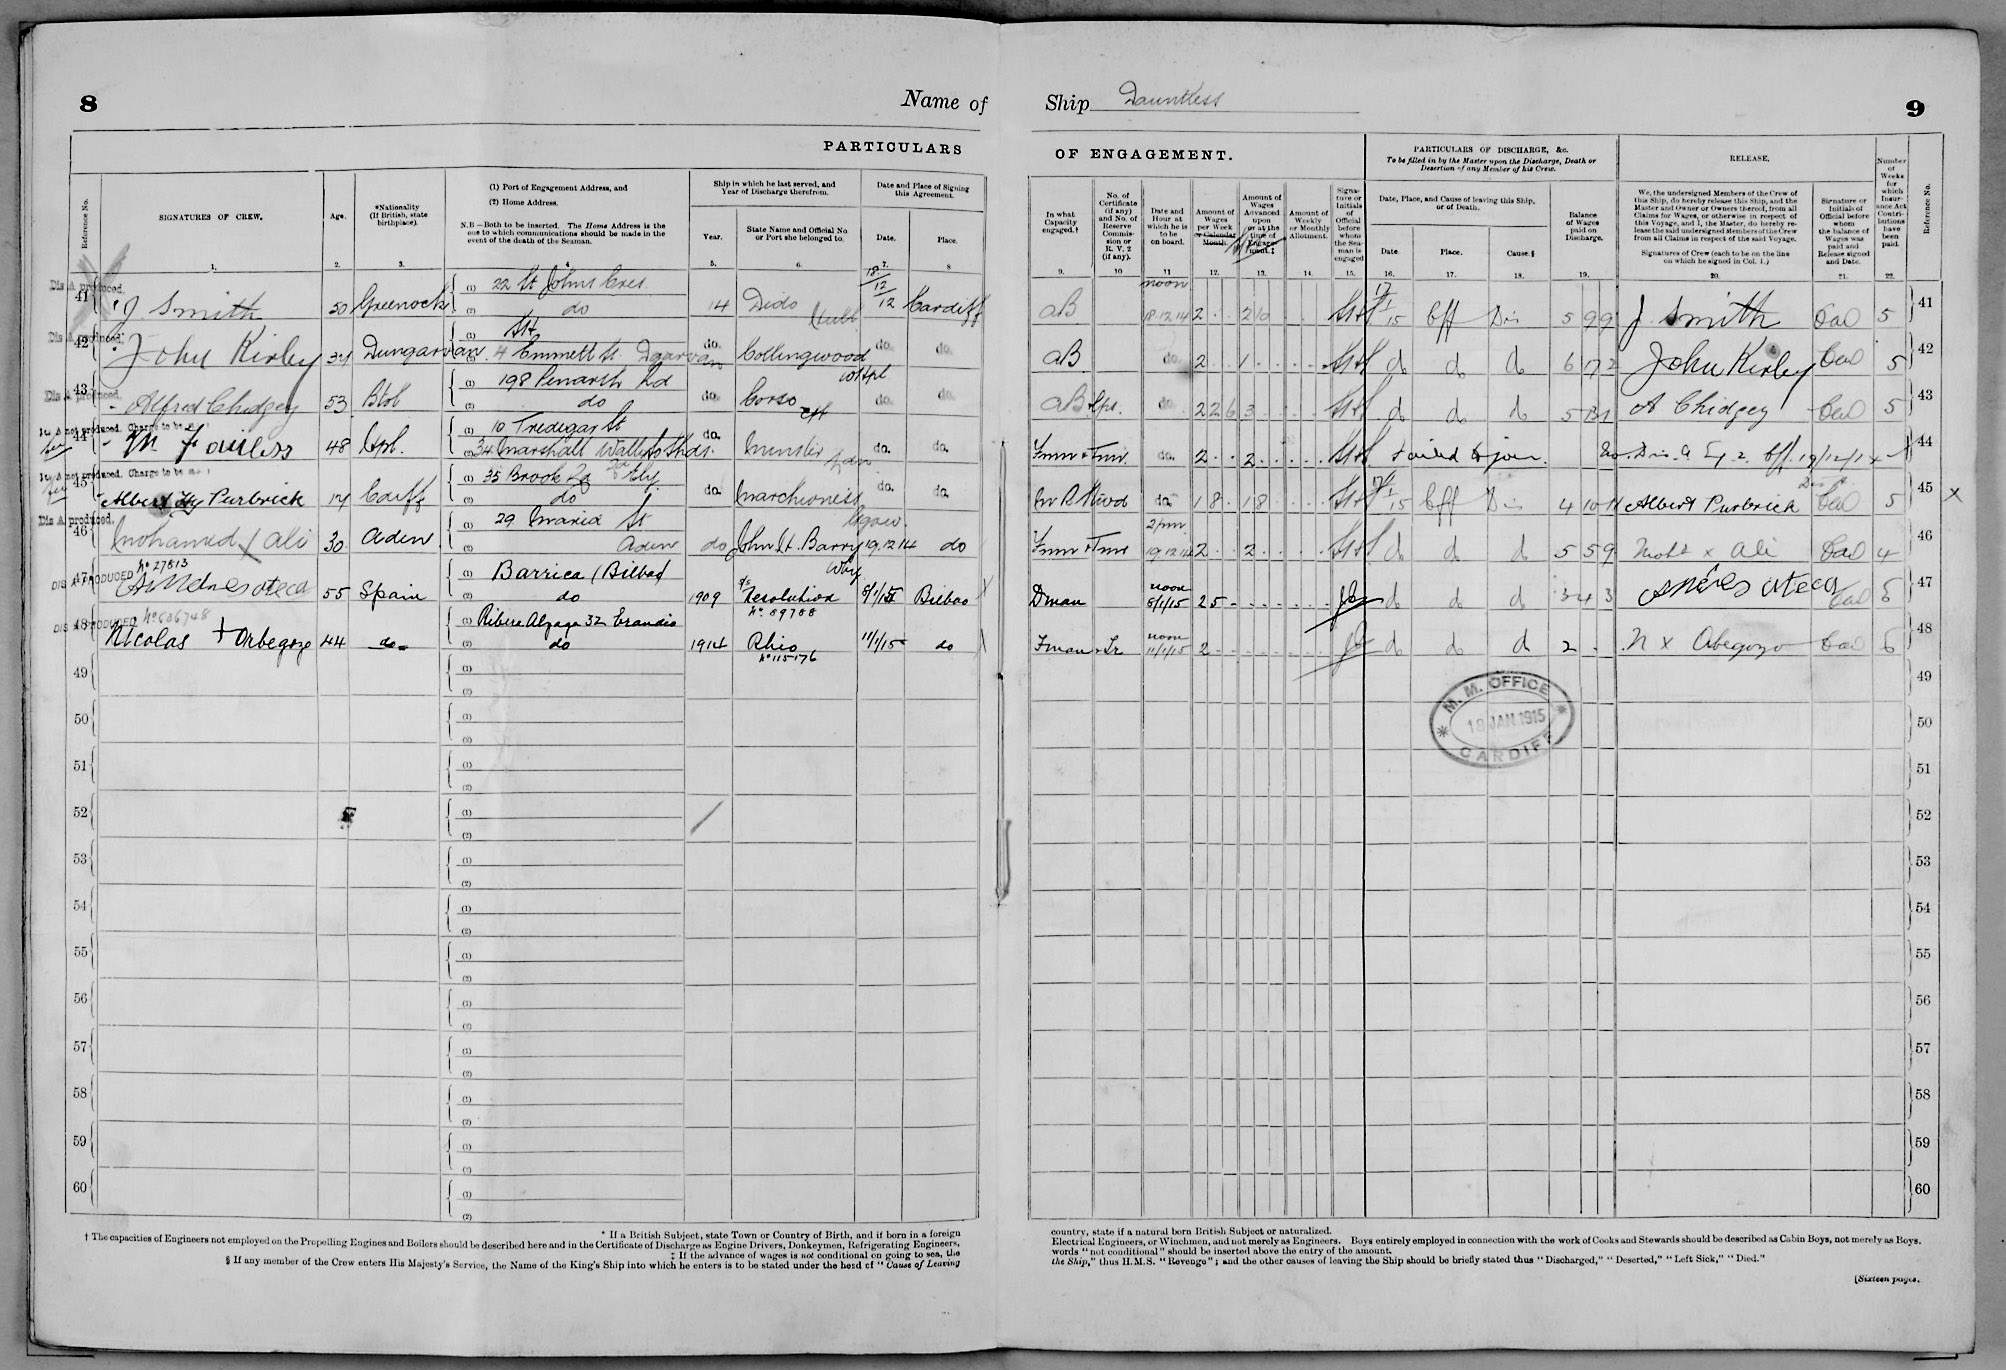 8
Name of
PARTICULARS
Reference No.
SIGNATURES OF CREW.
Age.
*Nationality
(If British, state
birthplace).
(1) Port of Engagement Address, and
(2) Home Address.
N.B.—Both to be inserted. The Home Address is the
one to which communications should be made in the
event of the death of the Seaman.
Ship in which he last served, and
Year of Discharge therefrom.
Year.
State Name and Official No.
or Port she belonged to.
Date and Place of Signing
this Agreement.
Date.
Place.
1. 2. 3. 4 5. 6. 7. 8
Dis A produced.
41 J Smith 50 Greenock (1) 22 St Johns Cres 14 Dido Hull 18/12/12 Cardiff
(2) do
Dis A produced.
42 John Kirley 34 Dungarvan (1) Str do. Collingwood do. do.
(2) 4 Emmett St.
Dis A produced.
43 Alfred Chidgey 53 Btol (1) 198 Penarth Rd do. Corso do. do.
(2) do
Dis A not produced. Charge to be
44 48 (1) 10 Tredegar St do. Minster do. do.
(2) 34 Marshall Wallis Rd S Shds.
Dis A not produced. Charge to be
45 Albert Hy Purbrick 17 Cardiff (1) 35 Brook Ely do. Marchioness do. do.
(2) do
Dis A produced.
46 Mohamed X Ali 30 Aden (1) 29 Maria St do John St. Barry 19.12.14 do
(2) Aden
DIS A PRODUCED No 27813
47 Andres Oteca 55 Spain (1) Barrica (Bilbao) 1909 s/s Resolution No. 89788 8/1/15 Bilbao
(2) do
DIS A PRODUCED No 636748
48 Nicolas + Orbegozo 44 do (1) Ribera Alzaga 32 Erandio 1914 Rhio No 115176 11/1/15 do
(2) do
49 (1) (2)
50 (1) (2)
51 (1) (2)
52 (1) (2)
53 (1) (2)
54 (1) (2)
55 (1) (2)
56 (1) (2)
57 (1) (2)
58 (1) (2)
59 (1) (2)
60 (1) (2)
* If a British Subject, state Town or Country of Birth, and if born in a foreign
† The capacities of Engineers not employed on the Propelling Engines and Boilers should be described here and in the Certificate of Discharge as Engine Drivers, Donkeymen, Refrigerating Engineers,
‡ If the advance of wages is not conditional on going to sea, the
§ If any member of the Crew enters His Majesty's Service, the Name of the King's Ship into which he enters is to be stated under the head of "Cause of Leaving
Ship Dauntless
9
OF ENGAGEMENT.
PARTICULARS OF DISCHARGE, &c.
To be filled in by the Master upon the Discharge, Death or
Desertion of any Member of his Crew.
RELEASE.
In what
Capacity
engaged.†
No. of
Certificate
(if any)
and No. of
Reserve
Commis-
sion or
R. V. 2
(if any).
Date and
Hour at
which he is
to be
on board.
Amount of
Wages
per Week
or Calendar
Month.
Amount of
Wages
Advanced
upon
or at the
time of
Engage-
ment.‡
Amount of
Weekly
or Monthly
Allotment.
Signa-
ture or
Initials
of
Official
before
whom
the Sea-
man is
engaged
Date, Place, and Cause of leaving this Ship,
or of Death.
Date.
Place.
Cause.§
Balance
of Wages
paid on
Discharge.
We, the undersigned Members of the Crew of
this Ship, do hereby release this Ship, and the
Master and Owner or Owners thereof, from all
Claims for Wages, or otherwise in respect of
this Voyage, and I, the Master, do hereby re-
lease the said undersigned Members of the Crew
from all Claims in respect of the said Voyage.
Signatures of Crew (each to be on the line
on which he signed in Col. 1.)
Signature or
Initials of
Official before
whom
the balance of
Wages was
paid and
Release signed
and Date.
Number
of
Weeks
for
which
Insur-
ance Act
Contri-
butions
have
been
paid.
Reference No.
9. 10 11 12. 13. 14. 15. 16. 17. 18. 19. 20. 21. 22.
AB noon 18.12.14 2 2 10 17/1/15 Cff Dis 5 9 9 J Smith 5 41
AB do 2 1 d d d 6 17 2 John Kirley 5 42
AB do. 2 2 6 3 d d d A Chidgey 5 43
Fmn + Tmr. do. 2 2 Failed to join. 44
do. 18 18 17/1/15 Cff Dis 4 10 11 Albert Purbrick 5 45 X
Fmn + Tmr 2 pm 19.12.14 2 2 d d d 5 5 9 Moh x Ali 4 46
Dman noon 8/1/15 2 5 d d d 3 4 3 Andres Oteca 47
Fman + Tr noon 11/1/15 2 d d d 2 N x Obegozo 48
M. M. OFFICE
18 JAN. 1915
CARDIFF
49
50
51
52
53
54
55
56
57
58
59
60
country, state if a natural born British Subject or naturalized.
Electrical Engineers, or Winchmen, and not merely as Engineers. Boys entirely employed in connection with the work of Cooks and Stewards should be described as Cabin Boys, not merely as Boys.
words "not conditional" should be inserted above the entry of the amount.
the Ship," thus H.M.S. "Revenge"; and the other causes of leaving the Ship should be briefly stated thus "Discharged," "Deserted," "Left Sick," "Died."
[Sixteen pages.